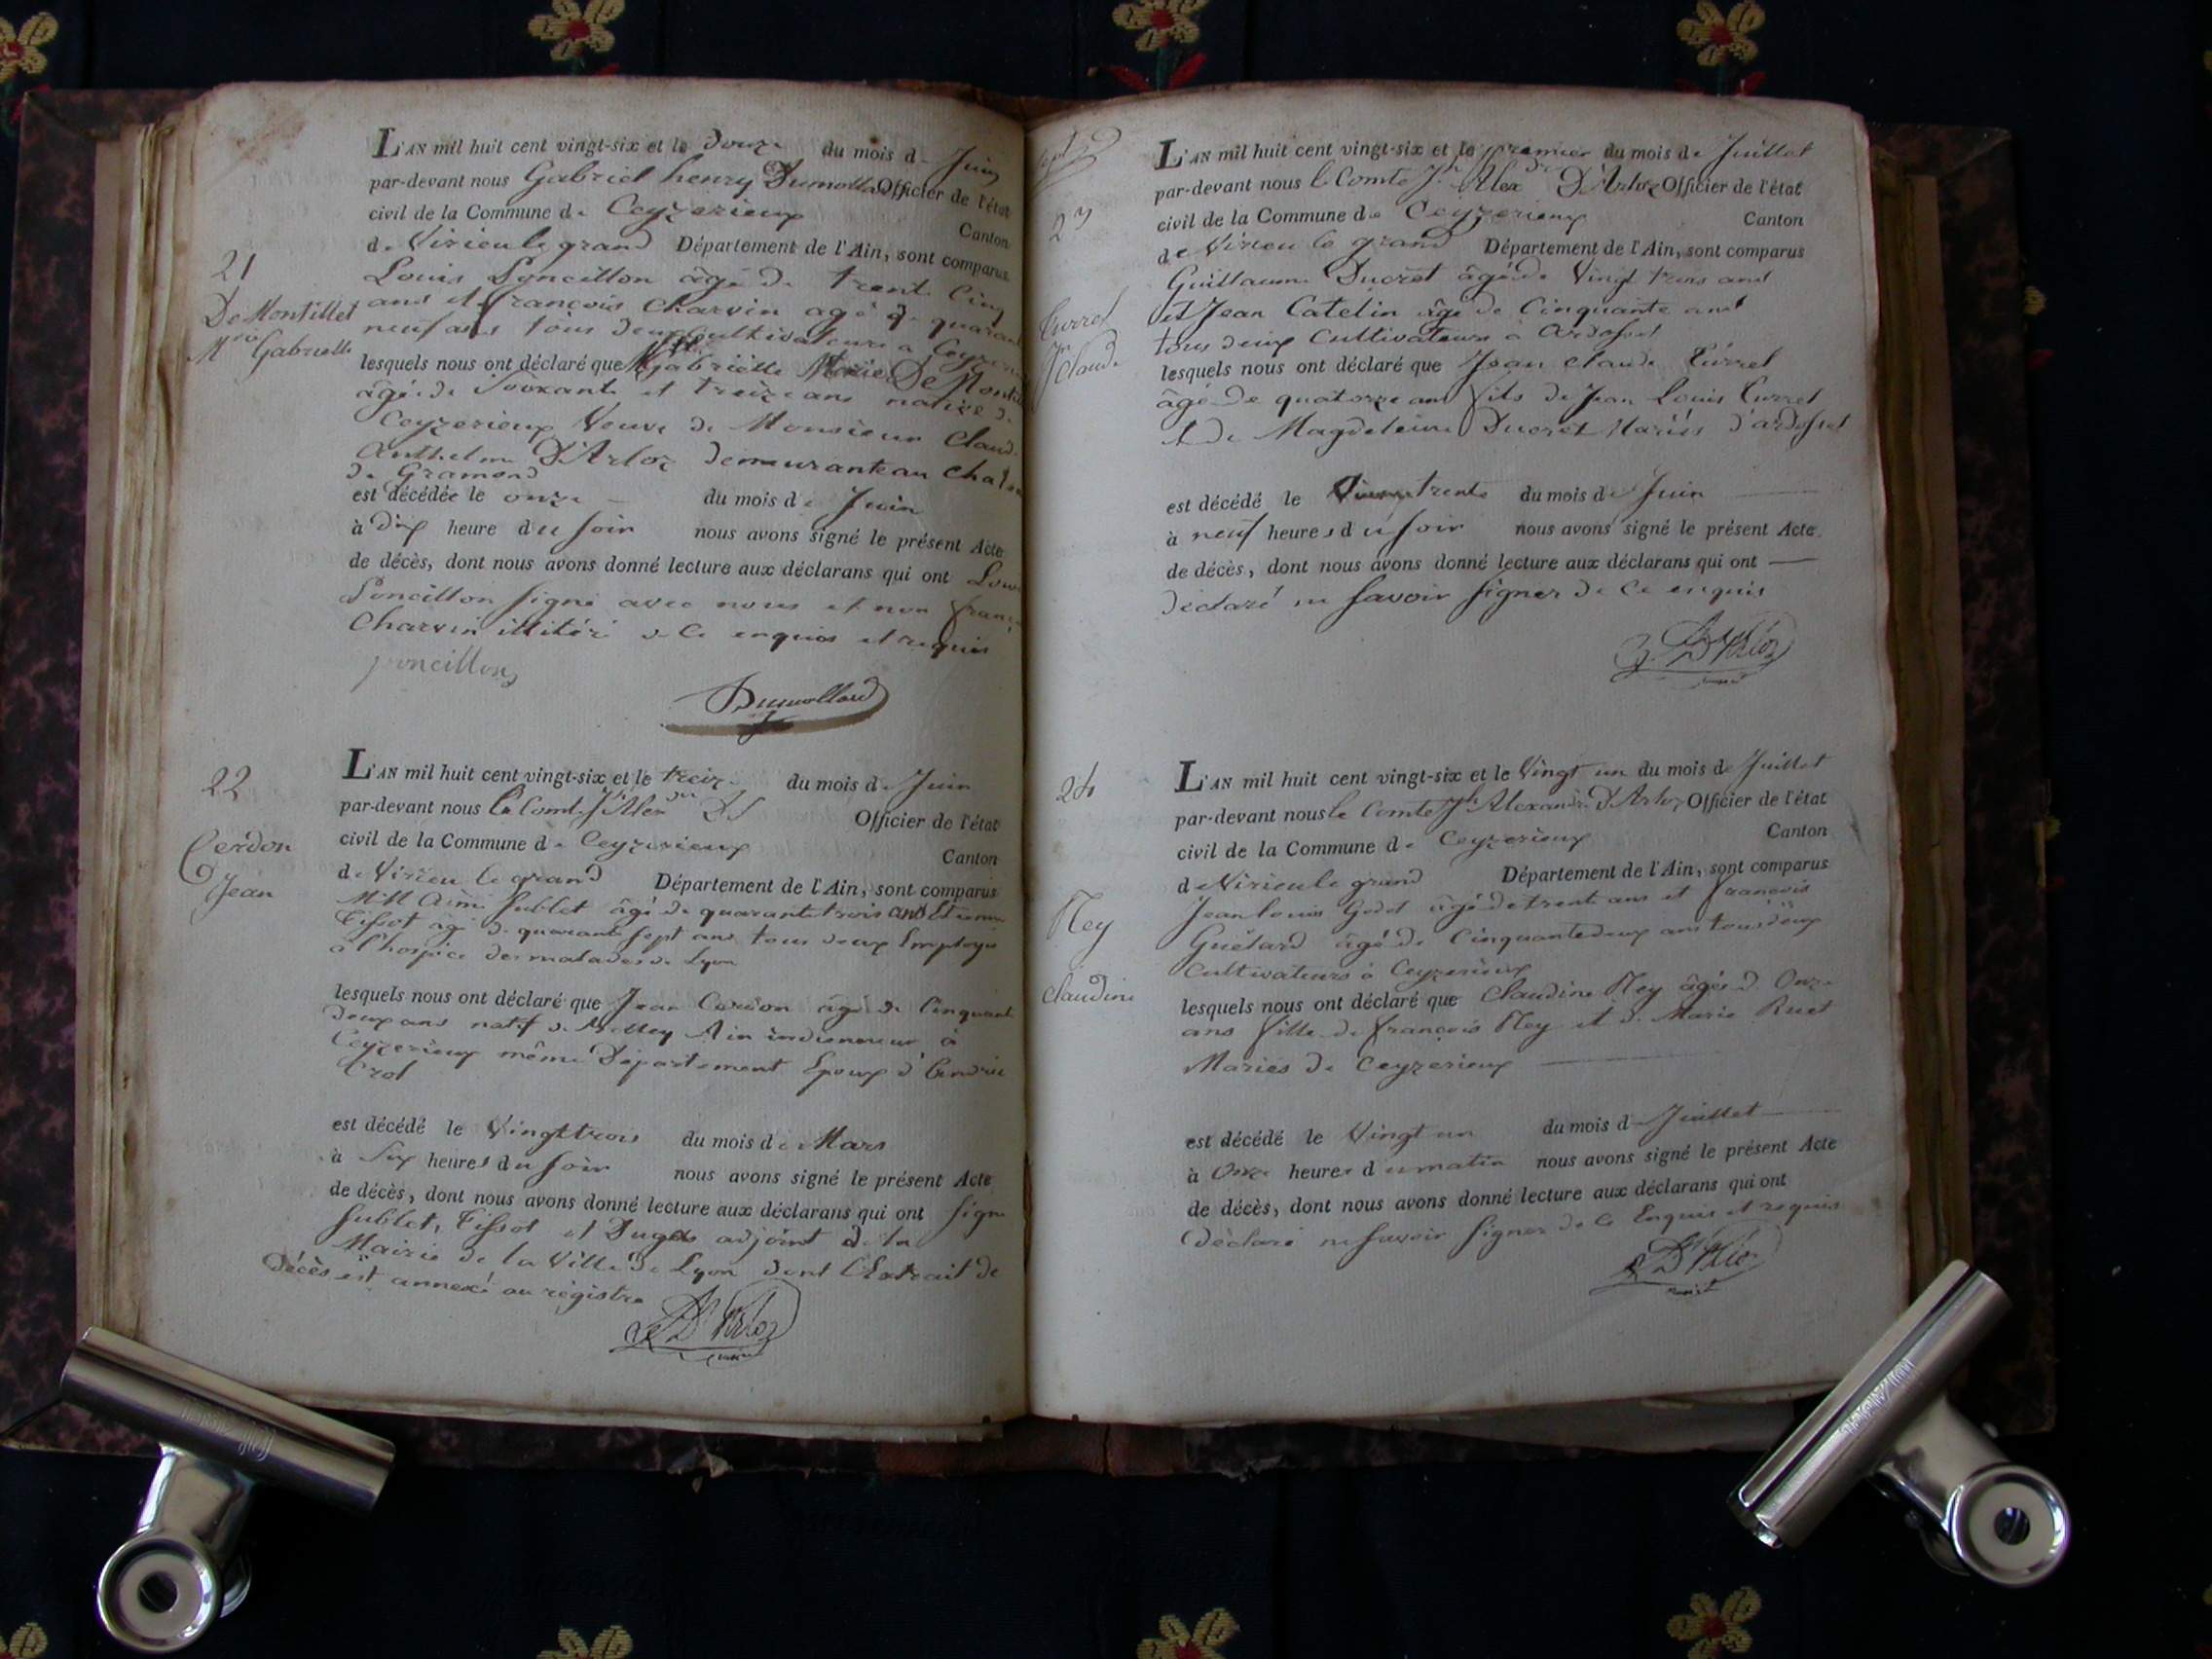 L'AN mil huit cent vingt-six et le douze du mois de Juin
par-devant nous Gabriel henry Dumollard Officier de l'état
civil de la Commune de Ceyzerieux Canton
de Virieu le grand Département de l'Ain, sont comparus
21
Louis Poncillon âgé de trente Cinq
De Montillet
ans et françois Charvin agé de quarante
Mie Gabrielle
neuf ans tous deux cultivateurs a
lesquels nous ont déclaré que Gabrielle Marie De
âgée de soixante et treize ans native de
Ceyzerieux Veuve de Monsieur Claude
Anthelme D'Arloz demeurante au
de Gramond
est décédée le onze du mois de Juin
à dix heure du soir nous avons signé le présent Acte
de décès, dont nous avons donné lecture aux déclarans qui ont Louis
Poncillon signé avec nous et non
Charvin illitéré de ce enquis et requis
poncillon
Dumollard
22
L'AN mil huit cent vingt-six et le treize du mois de Juin
par-devant nous le Comte Jh Alex Officier de l'état
civil de la Commune de Ceyzerieux Canton
Cerdon
Jean
de Virieu le grand Département de l'Ain, sont comparus
Aimé Sublet âgé de quarante trois ans Etienne
Tissot âgé de quarante sept ans tous deux Employés
à l'hospice des malades de Lyon
lesquels nous ont déclaré que Jean Cerdon âgé de Cinquante
deux ans natif de Belley Ain indienneur à
Ceyzerieux même Département Epoux d'
est décédé le Vingt trois du mois de Mars
à Six heures du soir nous avons signé le présent Acte
de décès, dont nous avons donné lecture aux déclarans qui ont signé
Sublet, Tissot et Dugas adjoint de la
Mairie de la Ville de Lyon dont l'Extrait de
décès est annexé au régistre
D'Arloz
23
L'AN mil huit cent vingt-six et le premier du mois de Juillet
par-devant nous le Comte Jh Alexdre D'Arloz Officier de l'état
civil de la Commune de Ceyzerieux Canton
de Virieu le grand Département de l'Ain, sont comparus
Guillaume Ducret âgé de Vingt trois ans
Curret
Jn Claude
et Jean Catelin âgé de Cinquante ans
tous deux Cultivateurs à Ardosset
lesquels nous ont déclaré que Jean Claude Curret
âgé de quatorze ans fils de Jean Louis Curret
et de Magdeleine Ducret Mariés d'ardosset
est décédé le trente du mois de Juin
à neuf heures du soir nous avons signé le présent Acte
de décès, dont nous avons donné lecture aux déclarans qui ont
déclaré ne savoir signer de ce enquis
D'Arloz
24
L'AN mil huit cent vingt-six et le Vingt un du mois de Juillet
par-devant nous le Comte Jh Alexandre D'Arloz Officier de l'état
civil de la Commune de Ceyzerieux Canton
de Virieu le grand Département de l'Ain, sont comparus
Ney
Claudine
Jean Louis Godet âgé de trente ans et françois
Guétard âgé de Cinquante deux ans tous deux
Cultivateurs à Ceyzerieux
lesquels nous ont déclaré que Claudine Ney âgée d'Onze
ans fille de françois Ney et de Marie Ruet
Mariés de Ceyzerieux
est décédé le Vingt un du mois de Juillet
à Onze heures du matin nous avons signé le présent Acte
de décès, dont nous avons donné lecture aux déclarans qui ont
déclaré ne savoir signer de ce Enquis et requis
D'Arloz